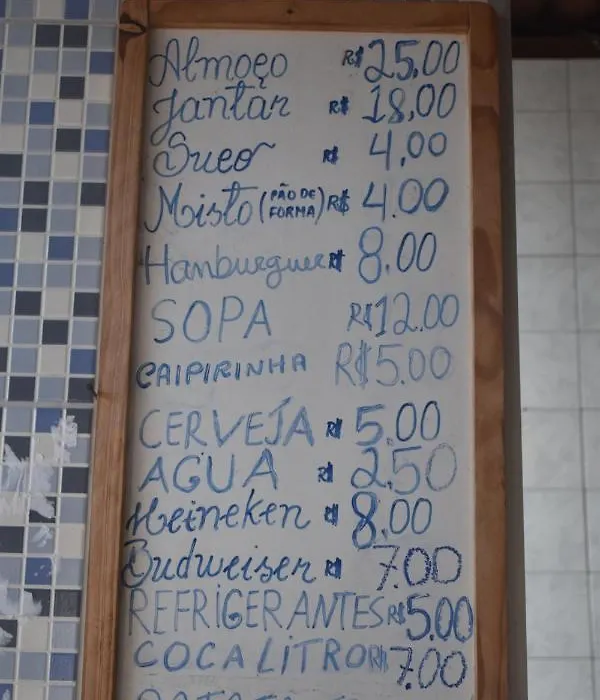 Almoço R$ 25,00
Jantar R$ 18,00
Suco R$ 4,00
Misto (PÃO DE FORMA) R$ 4.00
Hamburguer R$ 8.00
SOPA R$12.00
CAIPIRINHA R$5.00
CERVEJA R$ 5.00
AGUA R$ 2,50
Heineken R$ 8.00
Budweiser R$ 7.00
REFRIGERANTES R$5.00
COCA LITRO R$ 7.00